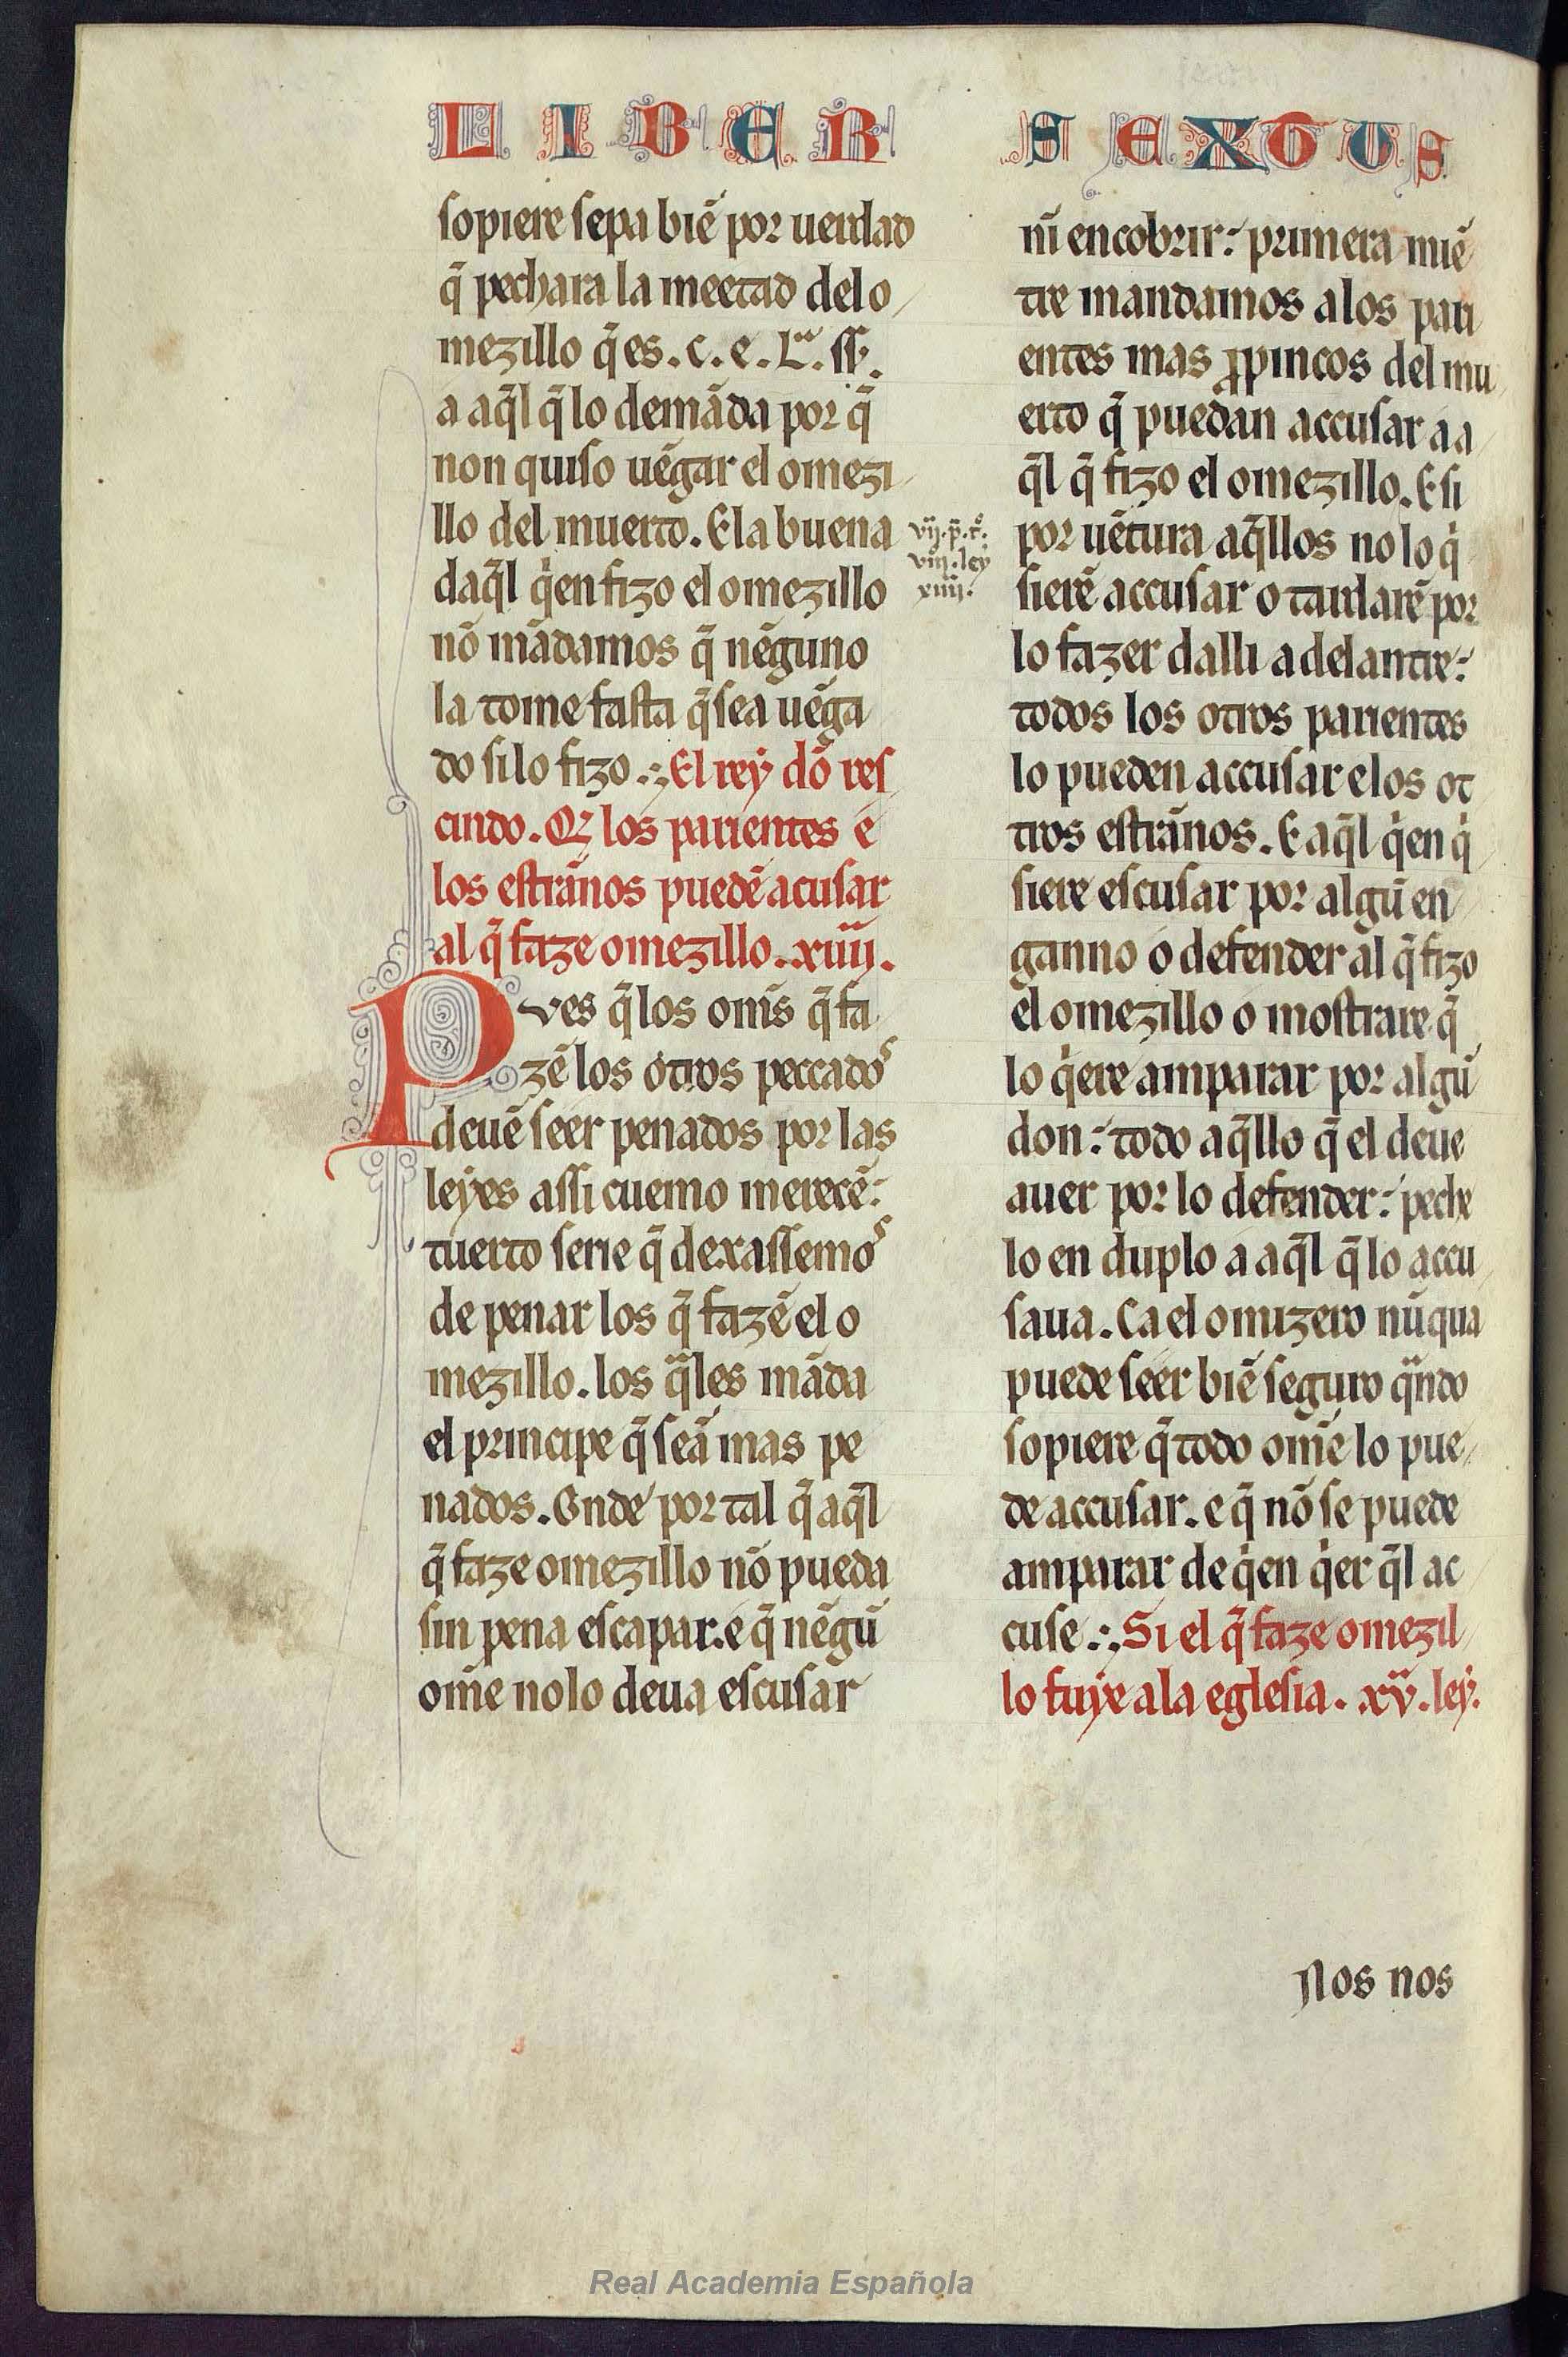 LIBER SEXTUS
sopiere sepa biẽ por uerdad
q̃ pechara la meetad del o
mezillo q̃ es. c. e. L.ᵃ ſſ.
a aq̃l q̃ lo demãda por q̃
non quiso uẽgar el omezi
llo del muerto. E la buena
daq̃l q̇en fizo el omezillo
nõ mãdamos q̃ nẽguno
la tome fasta q̃ sea uẽga
do si lo fizo. El rey dõ res
cindo. Q̃ los parientes e
los estrãnos puedẽ acusar
al q̃ faze omezillo. xiiij.
Pves q̃ los om̃s q̃ fa
zẽ los otros peccados
deuẽ seer penados por las
leyes assi cuemo merecẽ:
tuerto serie q̃ dexassemos
de penar los q̃ fazẽ el o
mezillo. los q̃les mãda
el principe q̃ seã mas pe
nados. Onde por tal q̃ aq̃l
q̃ faze omezillo nõ pueda
sin pena escapar. e q̃ nẽgũ
om̃e no lo deua escusar
vij. p̃. t̊.
viij. ley
xiiij.
nĩ encobrir: primera miẽ
tre mandamos a los pari
entes mas ꝓpincos del mu
erto q̃ puedan accusar a a
q̃l q̃ fizo el omezillo. E si
por uẽtura aq̃llos no lo q̇
sierẽ accusar o tardarẽ por
lo fazer dalli adelantre:
todos los otros parientes
lo pueden accusar e los ot
tros estrãnos. E aq̃l q̇en q̇
siere escusar por algũ en
ganno o defender al q̃ fizo
el omezillo o mostrare q̃
lo q̇ere amparar por algũ
don: todo aq̃llo q̃ el deue
auer por lo defender: peche
lo en duplo a aq̃l q̃ lo accu
saua. Ca el omizero nũqua
puede seer biẽ seguro q̃ndo
sopiere q̃ todo om̃e lo pue
de accusar. e q̃ nõ se puede
amparar de q̇en q̇er q̃l ac
cuse. Si el q̃ faze omezil
lo fuye a la eglesia. xv. ley.
Nos nos
Real Academia Española